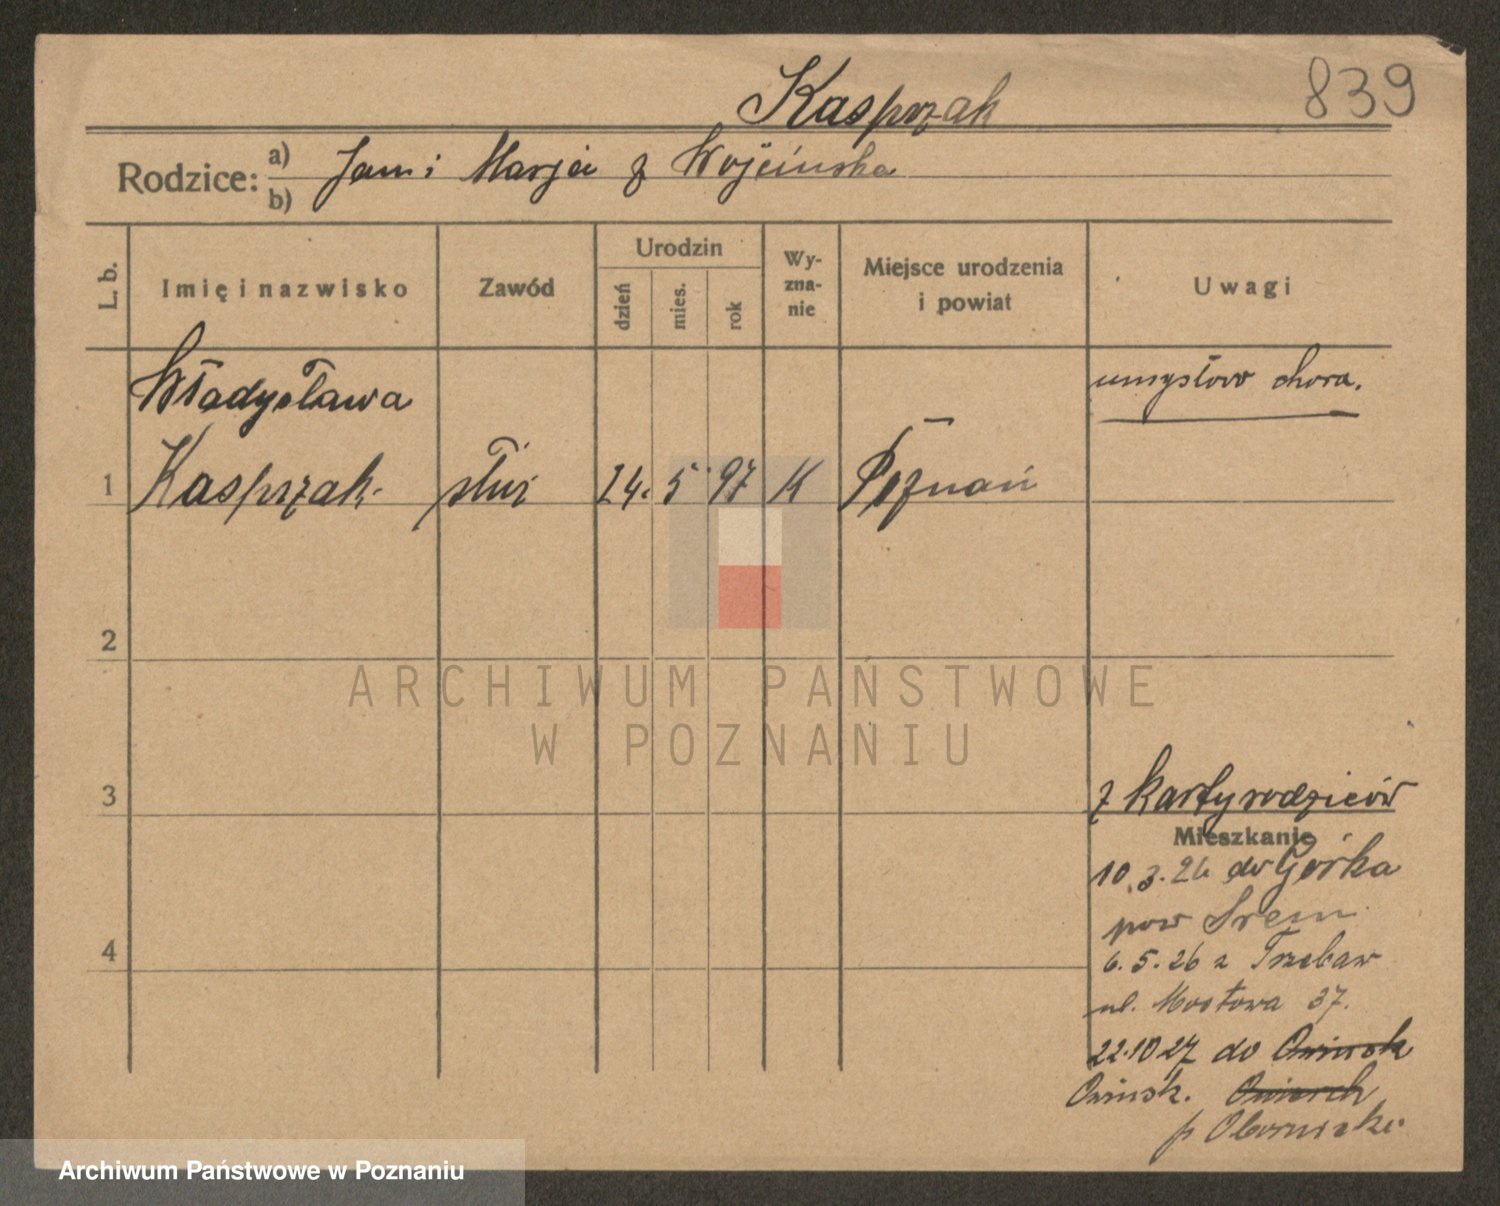 Kasprzak
839
Rodzice: a) Jan i Marja z Wojcińska
b)
L. b.
Imię i nazwisko
Zawód
Urodzin
dzień
mies.
rok
Wy-
zna-
nie
Miejsce urodzenia
i powiat
Uwagi
Władysława
umysłow chora.
1 Kasprzak. 24. 5 97 K Poznań
2
ARCHIWUM PAŃSTWOWE
W POZNANIU
3
z karty rodziców
Mieszkanie
10.3.26 do Górka
pow Śrem
4
6.5.26 z Trzebaw
ul. Mostowa 37.
22.10 27 do Owinsk
Owinsk.
p Obornicki
Archiwum Państwowe w Poznaniu